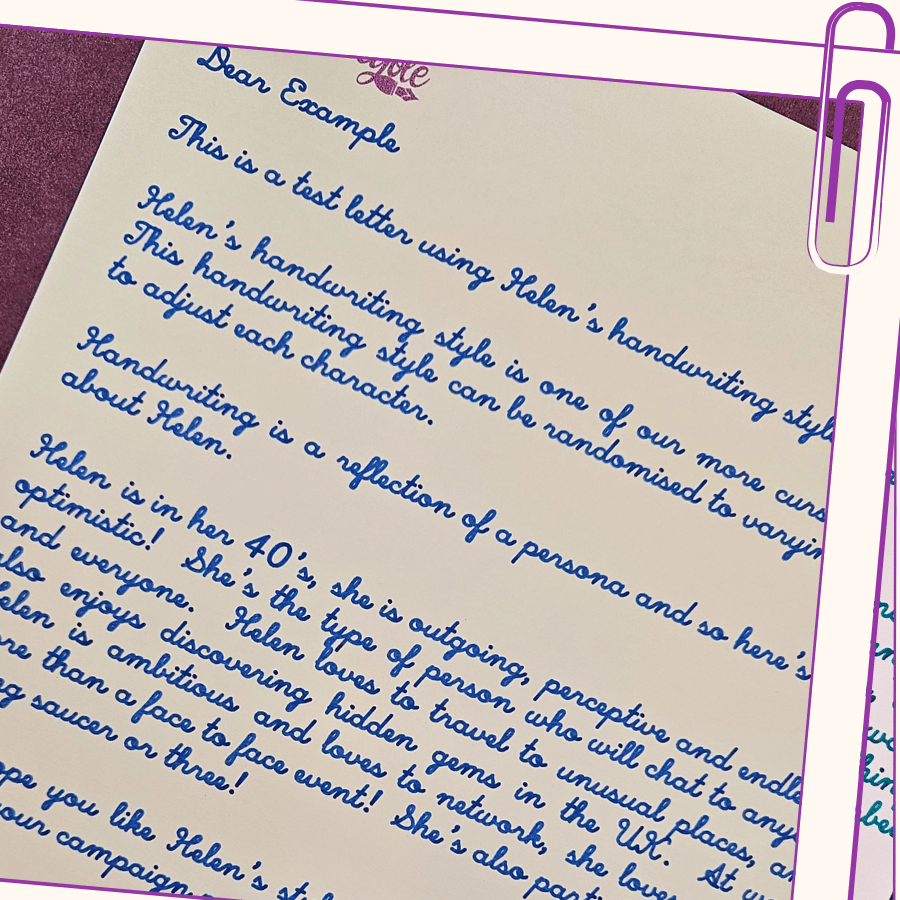 Dear Example
This is a test letter using Helen's handwriting style
Helen's handwriting style is one of our more curs
This handwriting style can be randomised to varyin
to adjust each character.
Handwriting is a reflection of a persona and so here's
about Helen.
Helen is in her 40's, she is outgoing, perceptive and endle
optimistic! She's the type of person who will chat to any
and everyone. Helen loves to travel to unusual places, an
also enjoys discovering hidden gems in the UK. At w
elen is ambitious and loves to network, she loves
re than a face to face event! She's also parti
g saucer or three!
ope you like Helen's sty
our campaign